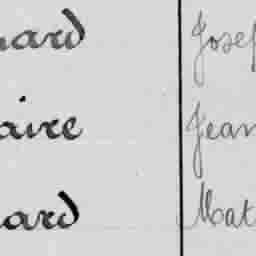 nard Josep
aire Jean
nard Mat